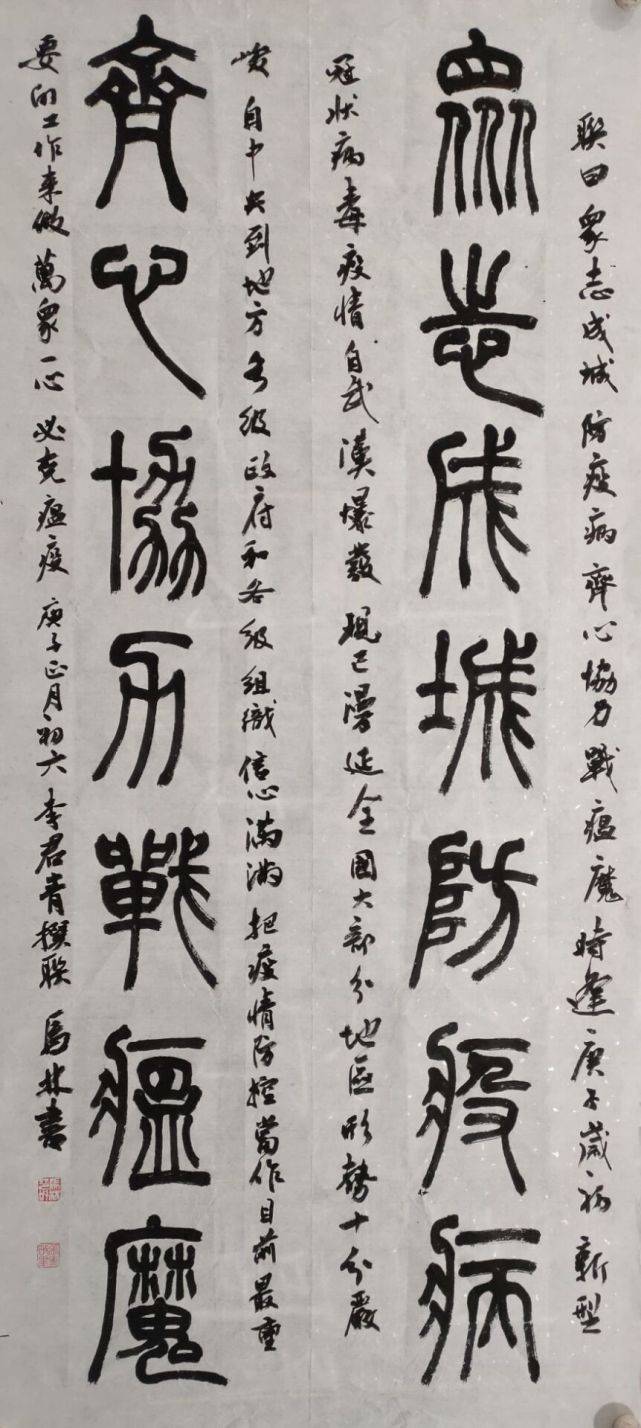 聯曰衆志成城防疫病齊心協力戰瘟魔時逢庚子歲初新型
衆志成城防疫病
冠狀病毒疫情自武漢爆發現已漫延全國大部分地區形勢十分嚴
峻自中央到地方各級政府和各級組織信心滿滿把疫情防控當作目前最重
齊心協力戰瘟魔
要的工作來做萬衆一心必克瘟疫庚子正月初六李君青撰聯馬林書